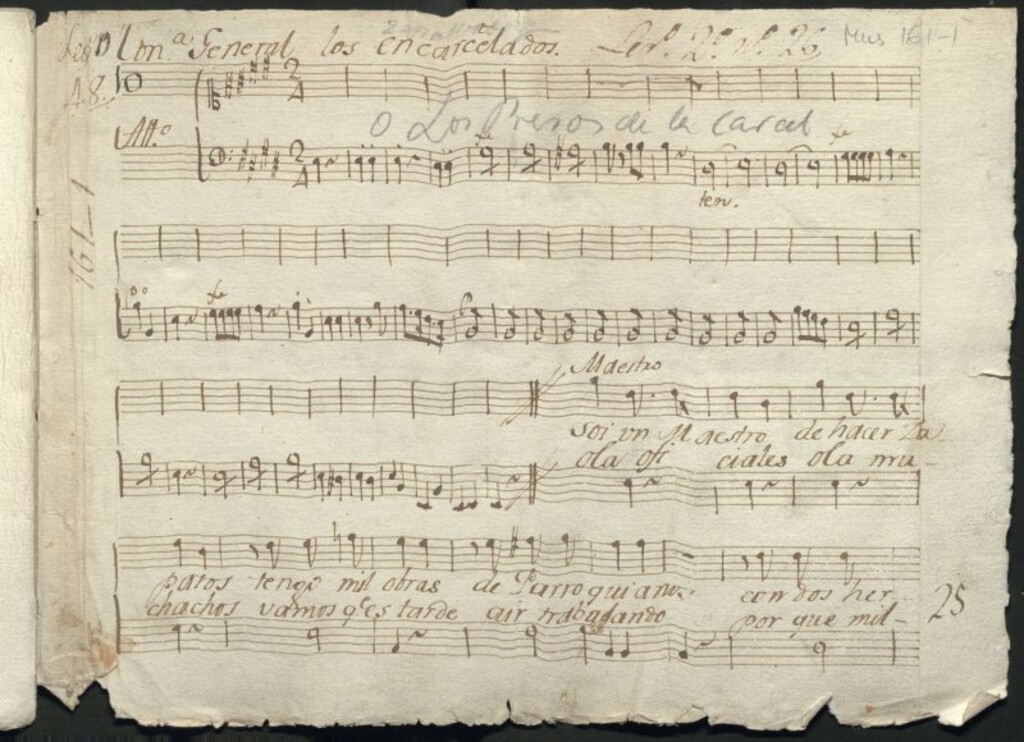 Ton.ª General los encarcelados. Leg.º 2.º n.º 26
Mus 161-1
A 8.
O Los Presos de la Carcel
All.º
ten.
161-1
Maestro
Soi un Maestro de hacer Za
ola ofi ciales ola mu-
patos tengo mil obras de Parroquianos con dos her-
chachos vamos q.e es tarde a ir trabajando por que mil-
25